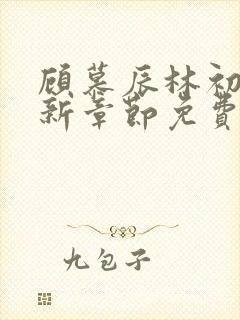 顾慕辰林初
新章节免费
九包子